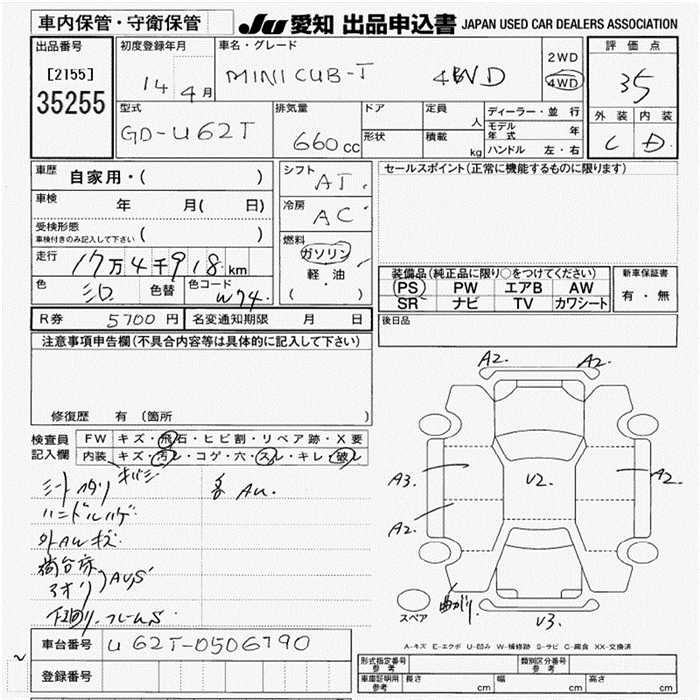 車内保管・守衛保管
JU 愛知 出品申込書 JAPAN USED CAR DEALERS ASSOCIATION
出品番号
[2155]
35255
初度登録年月
14年4月
車名・グレード
MINI CUB-T 4WD
2WD
4WD
評価点
35
外装 内装
C D
型式
GD-U62T
排気量
660cc
ドア
形状
定員 人
積載 kg
ディーラー・並行
モデル年式 年
ハンドル 左・右
車歴 自家用・( )
車検 年 月( 日)
受検形態
車検付きのみ記入して下さい ( )
走行 17万4千918km
色 シロ 色替 色コード W74
シフト AT
冷房 AC
燃料
ガソリン
軽・油
( )
セールスポイント(正常に機能するものに限ります)
装備品(純正品に限り○をつけてください)
PS PW エアB AW
SR ナビ TV カワシート
新車保証書
有・無
R券 5700円 名変通知期限 月 日
後日品
注意事項申告欄(不具合内容等は具体的に記入して下さい)
修復歴 有(箇所
検査員記入欄
FW キズ・飛石・ヒビ割・リペア跡・X要
内装 キズ・汚レ・コゲ・穴・スレ・キレ・破レ
シートヘタリ キバミ
AU.
ハンドルハゲ
外AUキズ
荷台床
アオリ
AUS
下回り、フレームS
A2. A2.
A3. V2. A2.
A2.
スペア
曲がり
V3.
A-キズ E-エクボ U-凹み W-補修跡 S-サビ C-腐食 XX-交換済
車台番号 U62T-0506790
登録番号
型式指定番号 参考
類別区分番号 参考
車庫証明用 参考
長さ cm 幅 cm 高さ cm